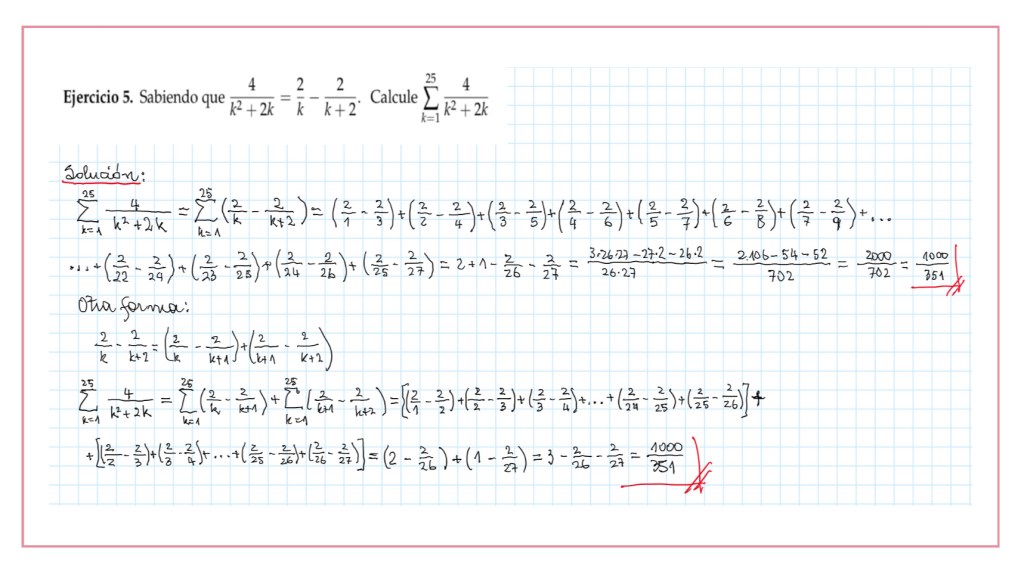 Ejercicio 5. Sabiendo que 4/(k²+2k) = 2/k − 2/(k+2). Calcule ∑_{k=1}^{25} 4/(k²+2k)
Solución:
∑_{k=1}^{25} 4/(k²+2k) = ∑_{k=1}^{25} (2/k − 2/(k+2)) = (2/1 − 2/3)+(2/2 − 2/4)+(2/3 − 2/5)+(2/4 − 2/6)+(2/5 − 2/7)+(2/6 − 2/8)+(2/7 − 2/9)+...
...+(2/22 − 2/24)+(2/23 − 2/25)+(2/24 − 2/26)+(2/25 − 2/27) = 2+1 − 2/26 − 2/27 = (3·26·27−27·2−26·2)/(26·27) = (2.106−54−52)/702 = 2000/702 = 1000/351
Otra forma:
2/k − 2/(k+2) = (2/k − 2/(k+1))+(2/(k+1) − 2/(k+2))
∑_{k=1}^{25} 4/(k²+2k) = ∑_{k=1}^{25} (2/k − 2/(k+1)) + ∑_{k=1}^{25} (2/(k+1) − 2/(k+2)) = [(2/1 − 2/2)+(2/2 − 2/3)+(2/3 − 2/4)+...+(2/24 − 2/25)+(2/25 − 2/26)] +
+[(2/2 − 2/3)+(2/3 − 2/4)+...+(2/25 − 2/26)+(2/26 − 2/27)] = (2 − 2/26)+(1 − 2/27) = 3 − 2/26 − 2/27 = 1000/351